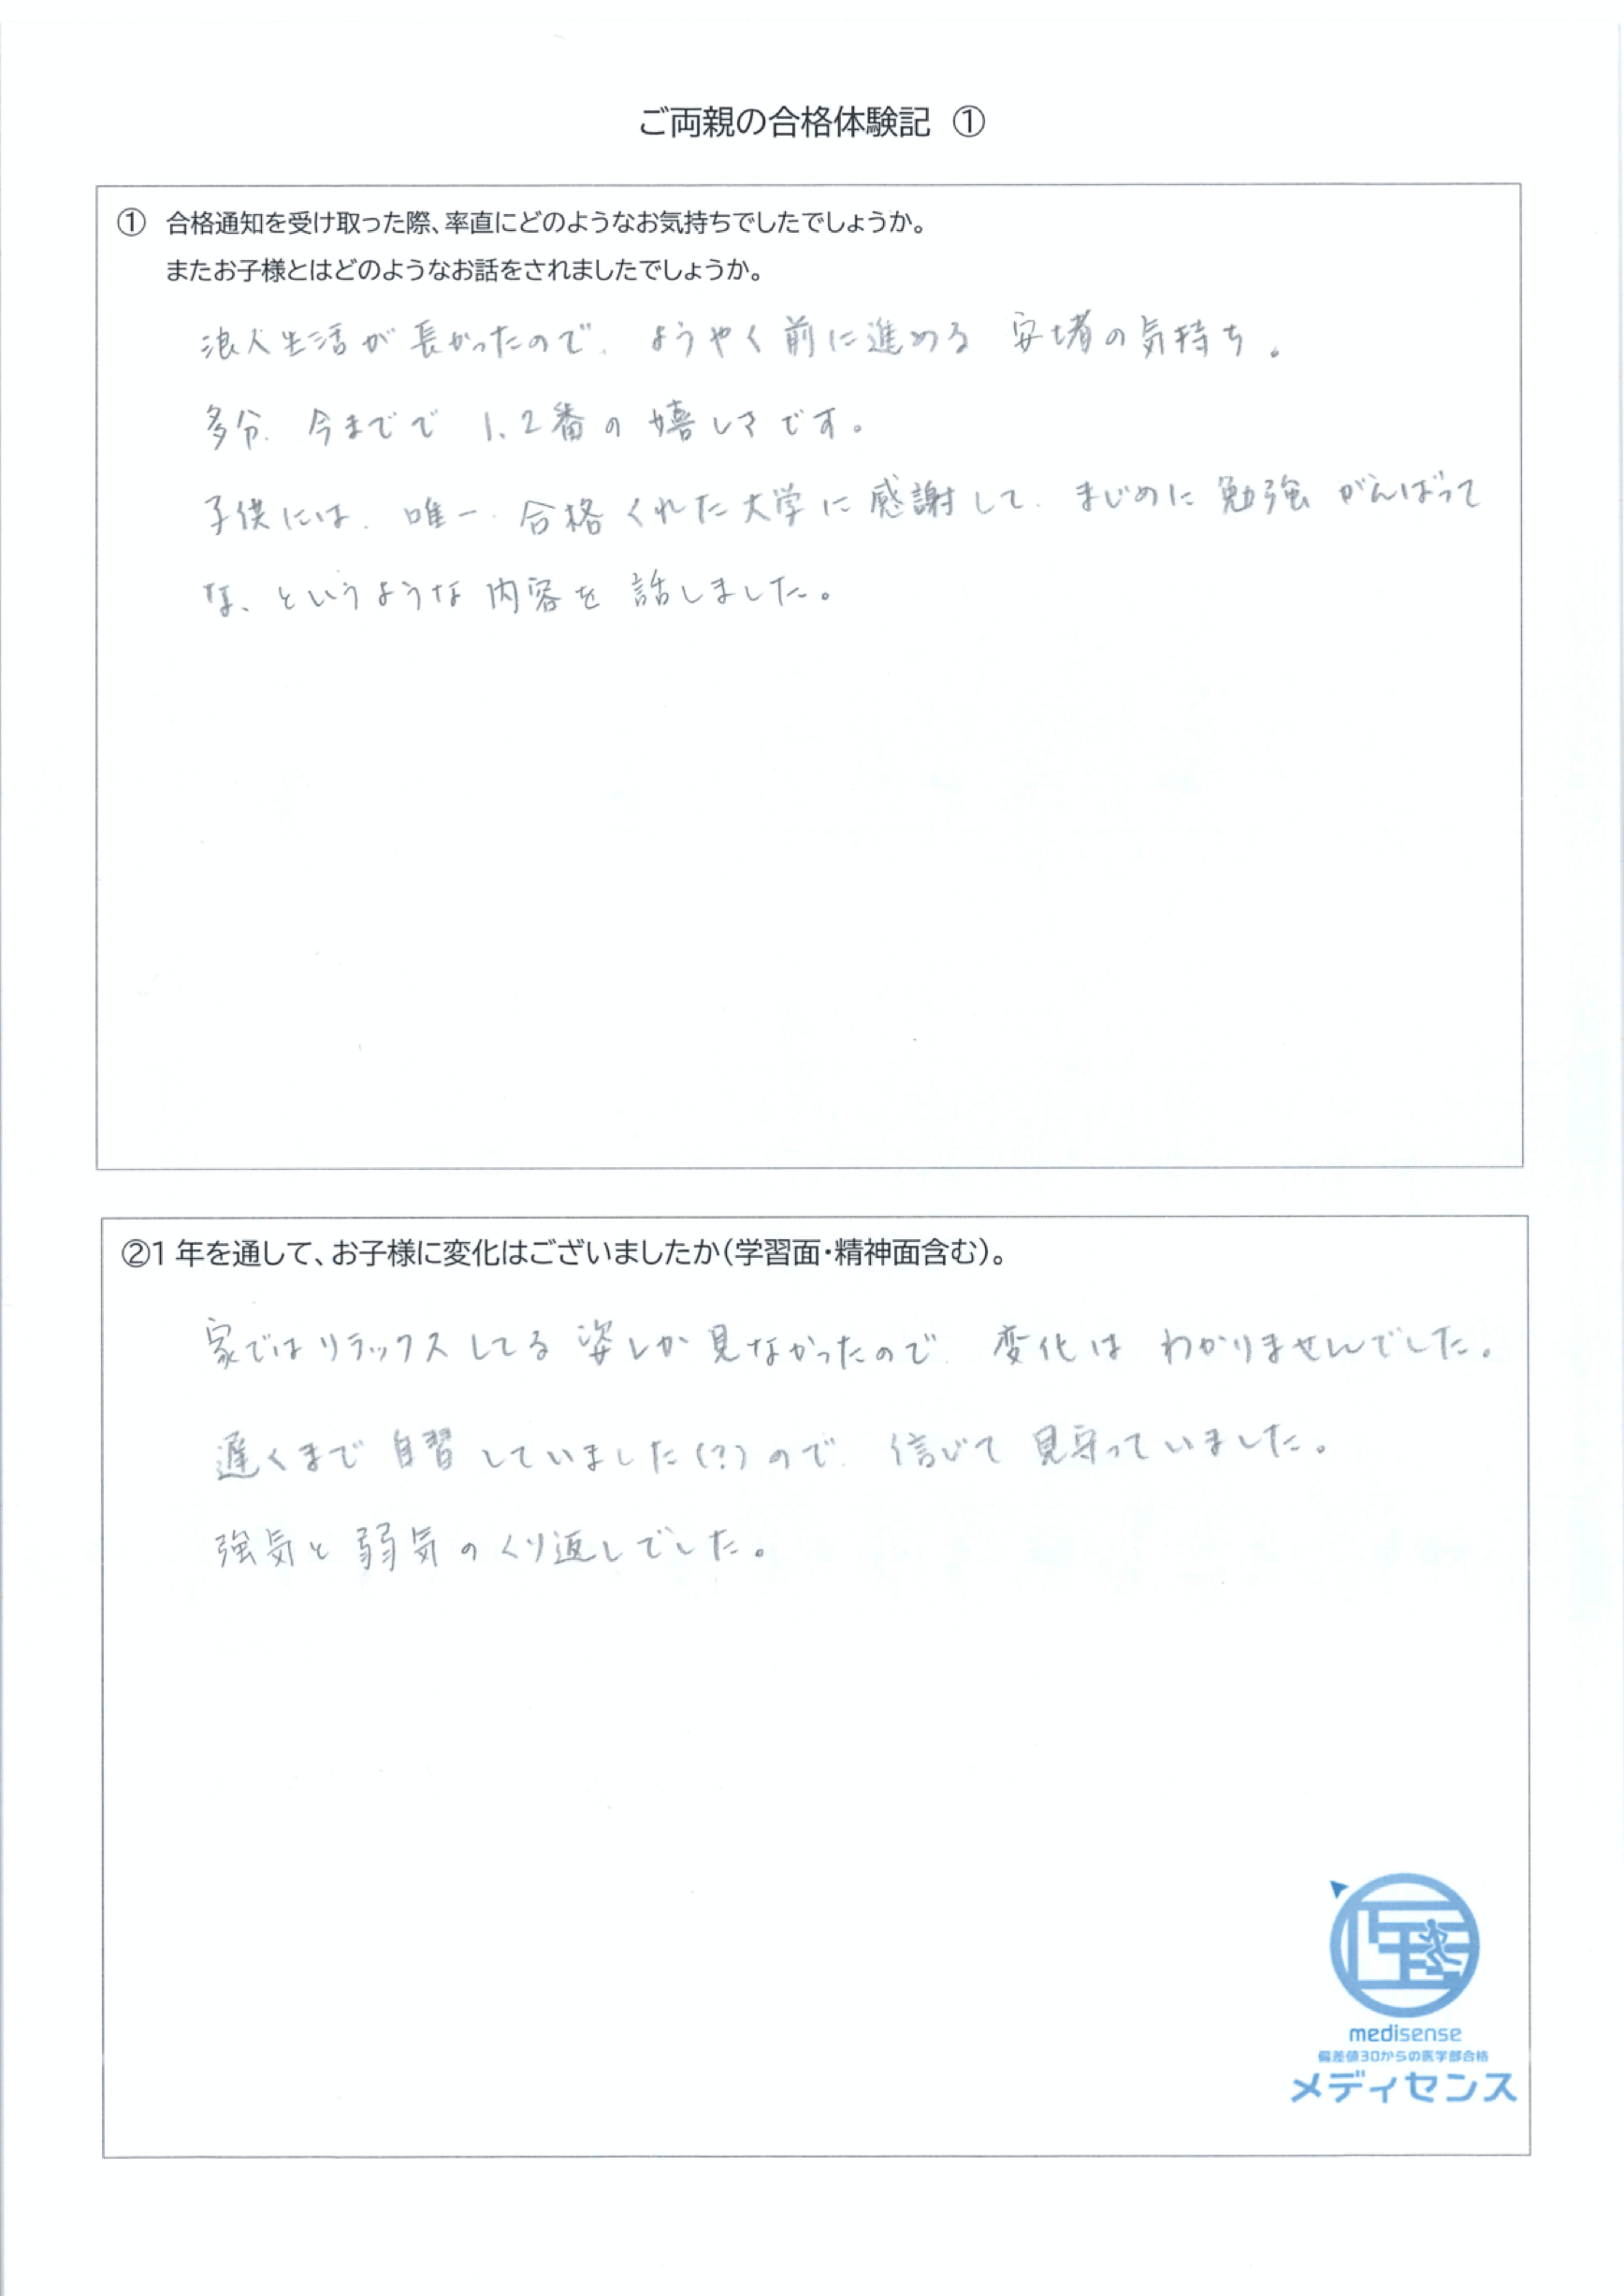 ご両親の合格体験記 ①
① 合格通知を受け取った際、率直にどのようなお気持ちでしたでしょうか。
またお子様とはどのようなお話をされましたでしょうか。
浪人生活が長かったので、ようやく前に進める安堵の気持ち。
多分、今までで1、2番の嬉しさです。
子供には、唯一、合格くれた大学に感謝して、まじめに勉強がんばって
な、というような内容を話しました。
②1年を通して、お子様に変化はございましたか(学習面・精神面含む)。
家ではリラックスしてる姿しか見なかったので、変化はわかりませんでした。
遅くまで自習していました(?)ので、信じて見守っていました。
強気と弱気のくり返しでした。
medisense
偏差値30からの医学部合格
メディセンス